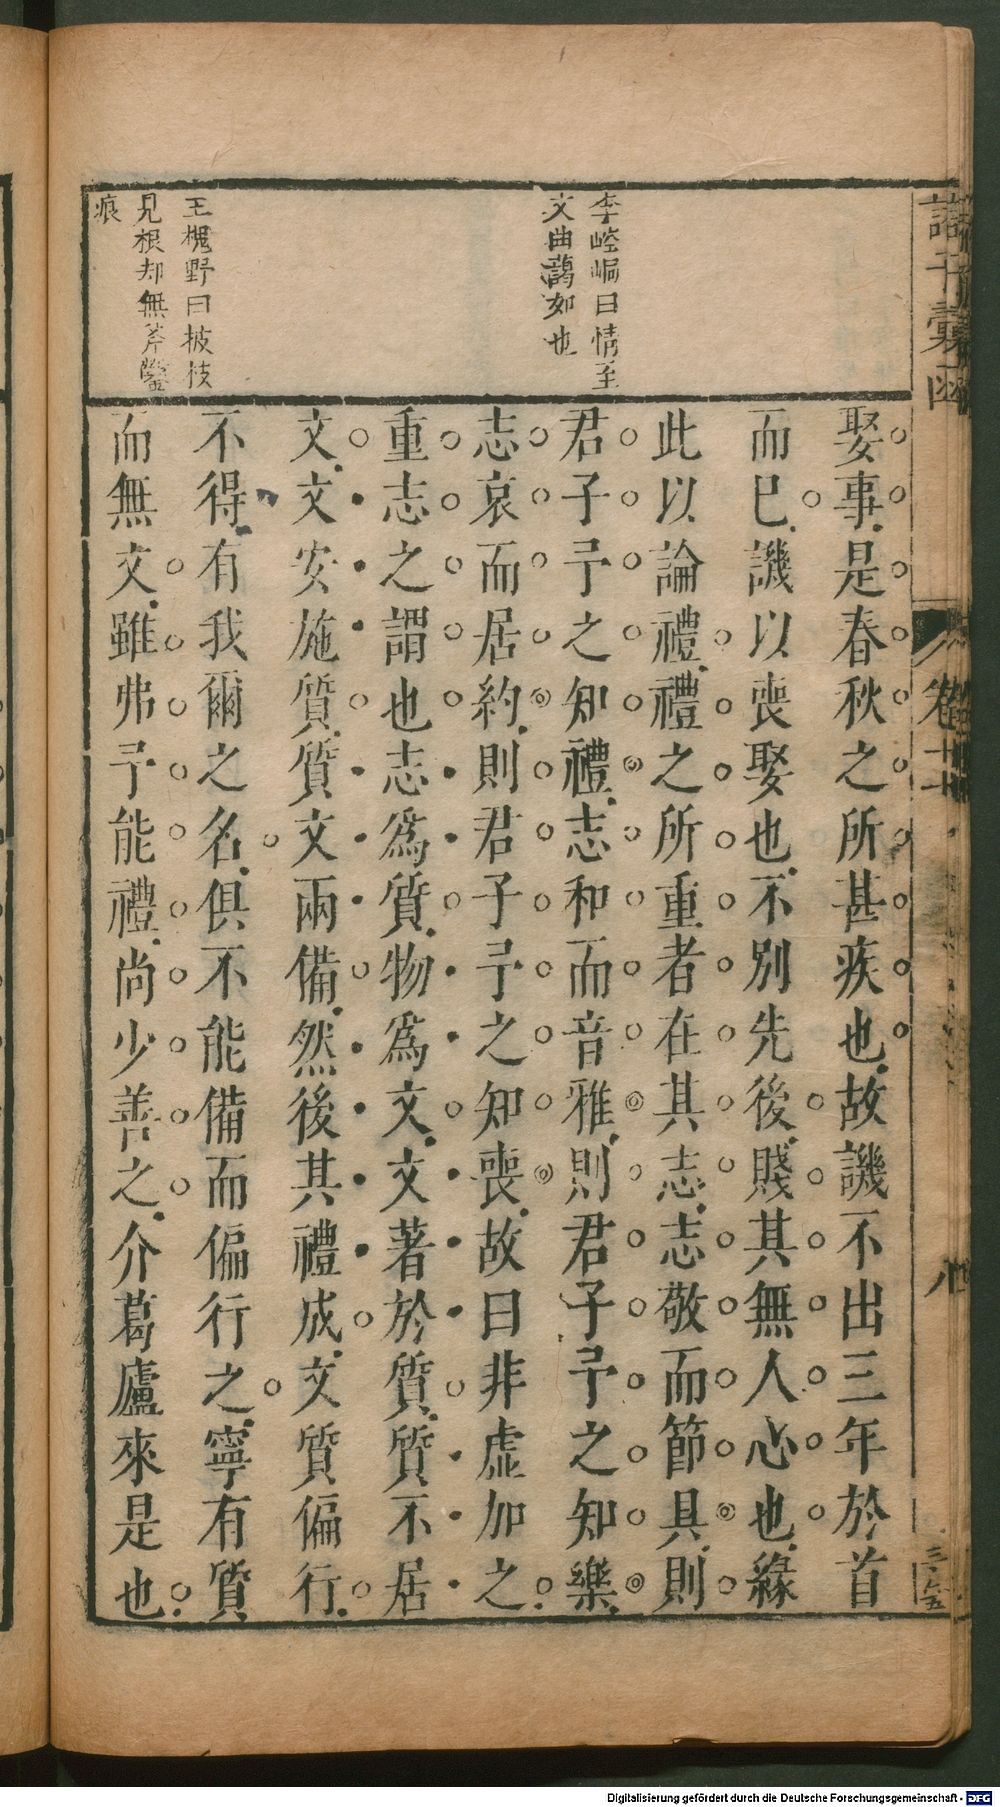 諸子彙函
卷十七
八
李崆峒曰情至
文曲藹如也
王槐野曰披枝
見根却無斧鑿
痕
娶事是春秋之所甚疾也故譏不出三年於首
而巳譏以喪娶也不別先後賤其無人心也緣
此以論禮禮之所重者在其志志敬而節具則
君子予之知禮志和而音雅則君子予之知樂
志哀而居約則君子予之知喪故曰非虛加之
重志之謂也志爲質物爲文文著於質質不居
文文安施質質文兩備然後其禮成文質偏行
不得有我爾之名俱不能備而偏行之寧有質
而無文雖弗予能禮尚少善之介葛盧來是也
Digitalisierung gefördert durch die Deutsche Forschungsgemeinschaft - DFG